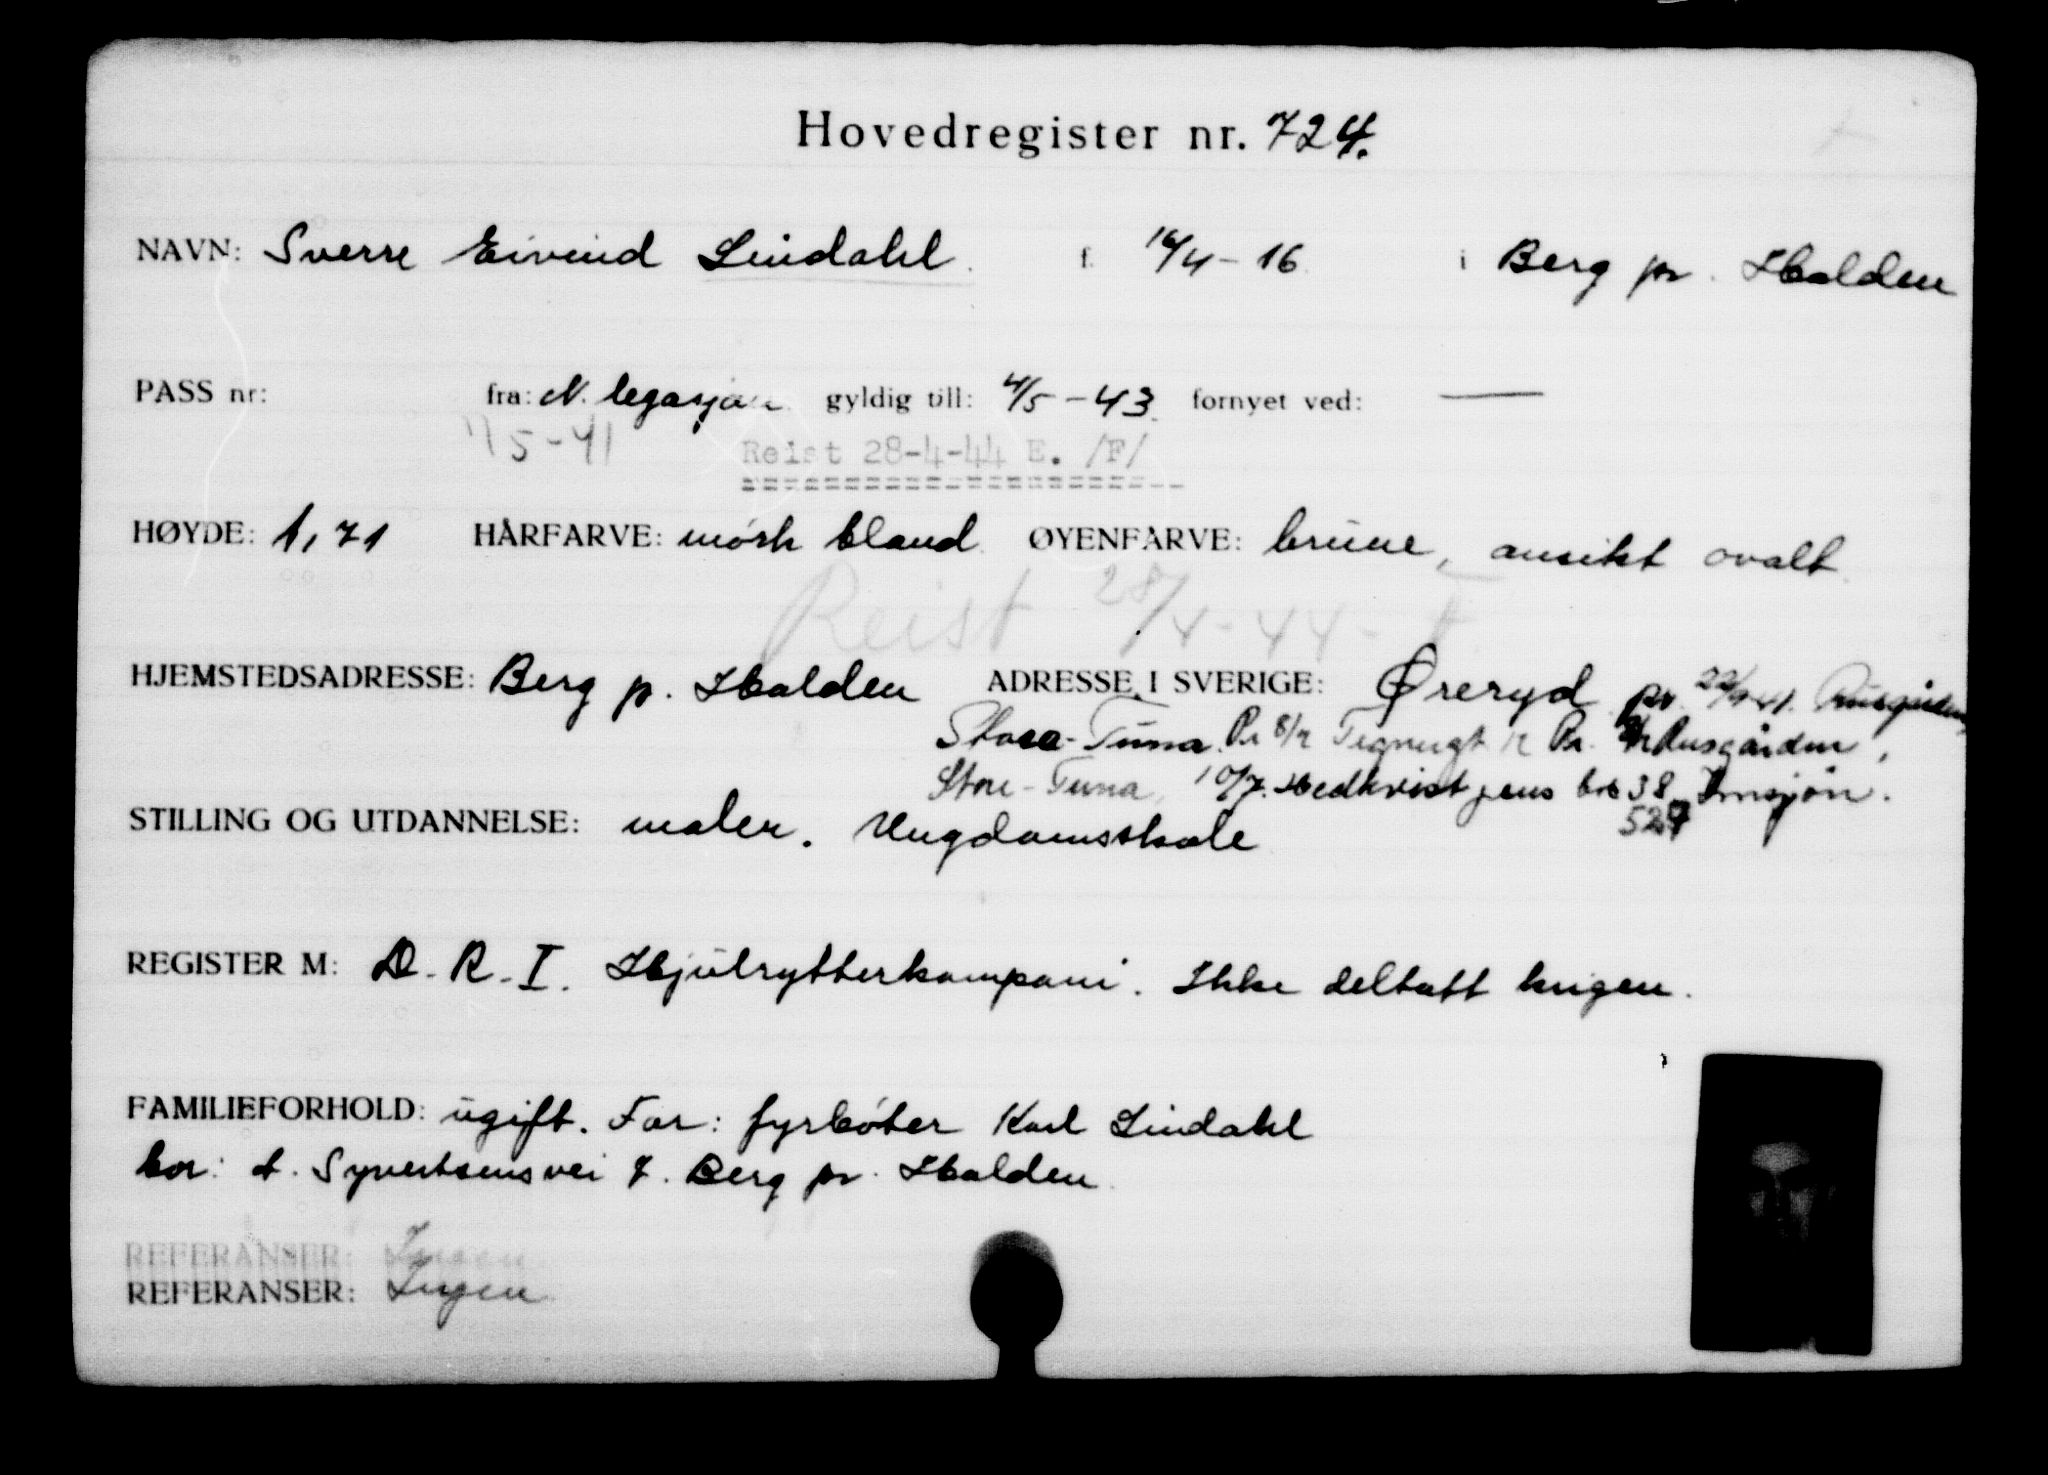 Hovedregister nr. 724.
NAVN: Sverre Eivind Lindahl f. 16/4-16 i Berg pr. Halden
PASS nr: fra: N. legasjon gyldig till: 4/5-43. fornyet ved: —
5-41 Reist 28-4-44 E. /F/
HØYDE: 1,71 HÅRFARVE: mørk bland ØYENFARVE: brune, ansikt ovalt
Reist 28/4-44-
HJEMSTEDSADRESSE: Berg p. Halden ADRESSE I SVERIGE: Øreryd pr. Rusgården,
Stora-Tuna. Pr 8/ Pr. Rusgården,
Stora-Tuna, 10/7. Hedkvist pens box 38 Insjön.
STILLING OG UTDANNELSE: maler. Ungdomsskole
REGISTER M: D.R.I. Hjulrytterkompani. Ikke deltatt krigen.
FAMILIEFORHOLD: ugift. Far: fyrbøter Karl Lindahl
bor: A. Syvertsens vei 7. Berg pr. Halden.
REFERANSER: Ingen
REFERANSER: Ingen